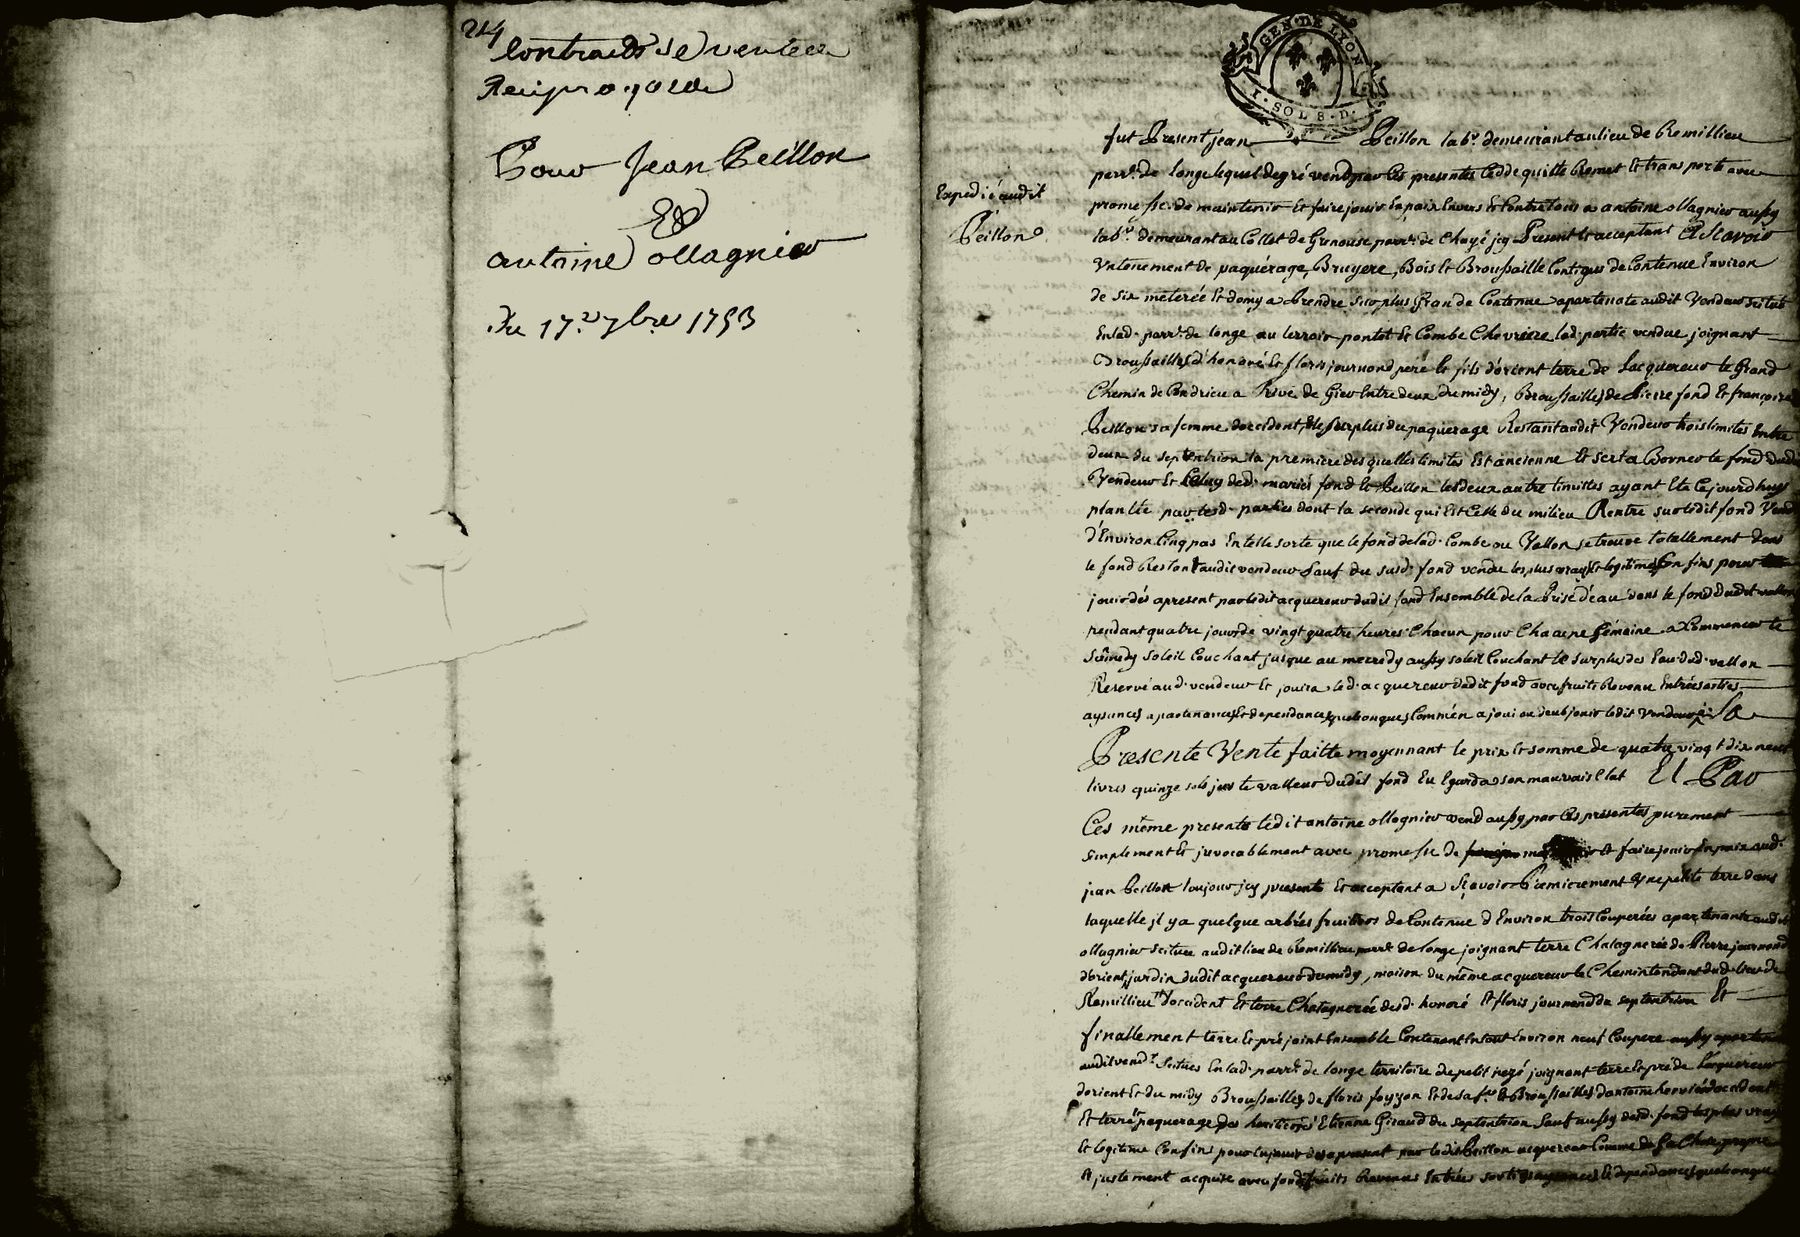 214
Contracts de ventes
Reciproques
Pour Jean Peillon
Et
antoine ollagnier
Du 17e 7bre 1753
GEN · DE LYON
I · SOL 8 · D ·
Expedié audit
Peillon
fut Present jean Peillon labr. demeurant au lieu de Remillieu
parr. de longe lequel de gré vend par ces presentes cedde quitte Remet et transporte avec
promesse de maintenir et faire jouir en paix Envers et Contre tous a antoine ollagnier aussy
labr. demeurant au Collet de Grenouse parr. de Chagé jcy Present et acceptant A Scavoir
Un tenement de paquérage, Bruyere, Bois et Broussaille Contigus de Contenue Environ
de six meterée et demy a Prendre sur plus Grande Contenue apartenate audit Vendeur scitué
En lad. parr. de longe au terroir pontet et Combe Chevriere lad. partie vendue joignant
Broussailles d'honoré et floris journond pere et fils d'orient terre de Lacquereur le Grand
Chemin de Condrieu a Rive de Gier Entre deux du midy, Broussailles de Pierre fond et françoise
Peillon sa femme d'occident, et le surplus du paquerage Restant audit Vendeur trois limites Entre
deux du septentrion la premiere des quelles limites est ancienne et sert a Borner le fond dudit
Vendeur et Celuy desd. mariés fond et Peillon les deux autre limittes ayant Eté Cejourdhuy
plantée par lesd. parties dont la seconde qui est Celle du milieu Rentre sur ledit fond Vendu
d'Environ Cinq pas En telle sorte que le fond de lad. Combe ou Vallon se trouve totallement dans
le fond Restant audit vendeur sauf du susd. fond vendu les plus vrays et legitimes Confins pour
jouir dés apresent par ledit acquereur dudit fond Ensemble de la Prise d'eau dans le fond dudit vallon
pendant quatre jours de vingt quatre heures Chacun pour Chacune semaine a Commencer le
samedy soleil Couchant jusque au mecredy aussy soleil Couchant le surplus des Eau dud. vallon
Reservé aud. vendeur et jouira led. acquereur dudit fond avec fruits Revenu Entrées sorties
aysances apartenances et dependances quelconques Comme en a joui ou deub jouir ledit Vendeur La
Presente Vente faitte moyennant le prix et somme de quatre vingt dix neuf
livres quinze sols juste valleur dudit fond Eu Egard a son mauvais Etat Et Par
Ces même presente ledit antoine ollagnier vend aussy par Ces presentes purement
simplement et jrrevocablement avec promesse de et faire jouir En paix aud.
jean Peillon toujour jcy present et acceptant a Scavoir Premierement Une petite terre dans
laquelle jl y a quelque arbres fruitiers de Contenue d'Environ trois Couperées apartenante audit
ollagnier scituée audit lieu de Remillieu parr. de longe joignant terre Chatagnerée de Pierre journond
d'orient, jardin dudit acquereur du midy, maison du même acquereur le Chemin tendant dud. lieu de
Remillieu d'occident et terre Chatagnerée desd. honoré et floris journond du septentrion Et
finallement terre et pré joint Ensemble Contenant En tout Environ neuf Coupere aussy apartenant
audit vendr. scitués En lad. parr. de longe territoire de petit joignant terre et pré de Lacquereur
d'orient et du midy Broussailles de floris foyzon et de sa fe. et Broussailles d'antoine d'occident
et terre paquerage des heritiers Etienne Giraud du septentrion sauf aussy desd. fond les plus vrays
et legitime Confins pour En jouir des apresent par ledit Peillon acquereur Comme de sa Chose propre
et justement acquise avec fond fruits Revenus Entrées sorties aysances et dependances quelconque